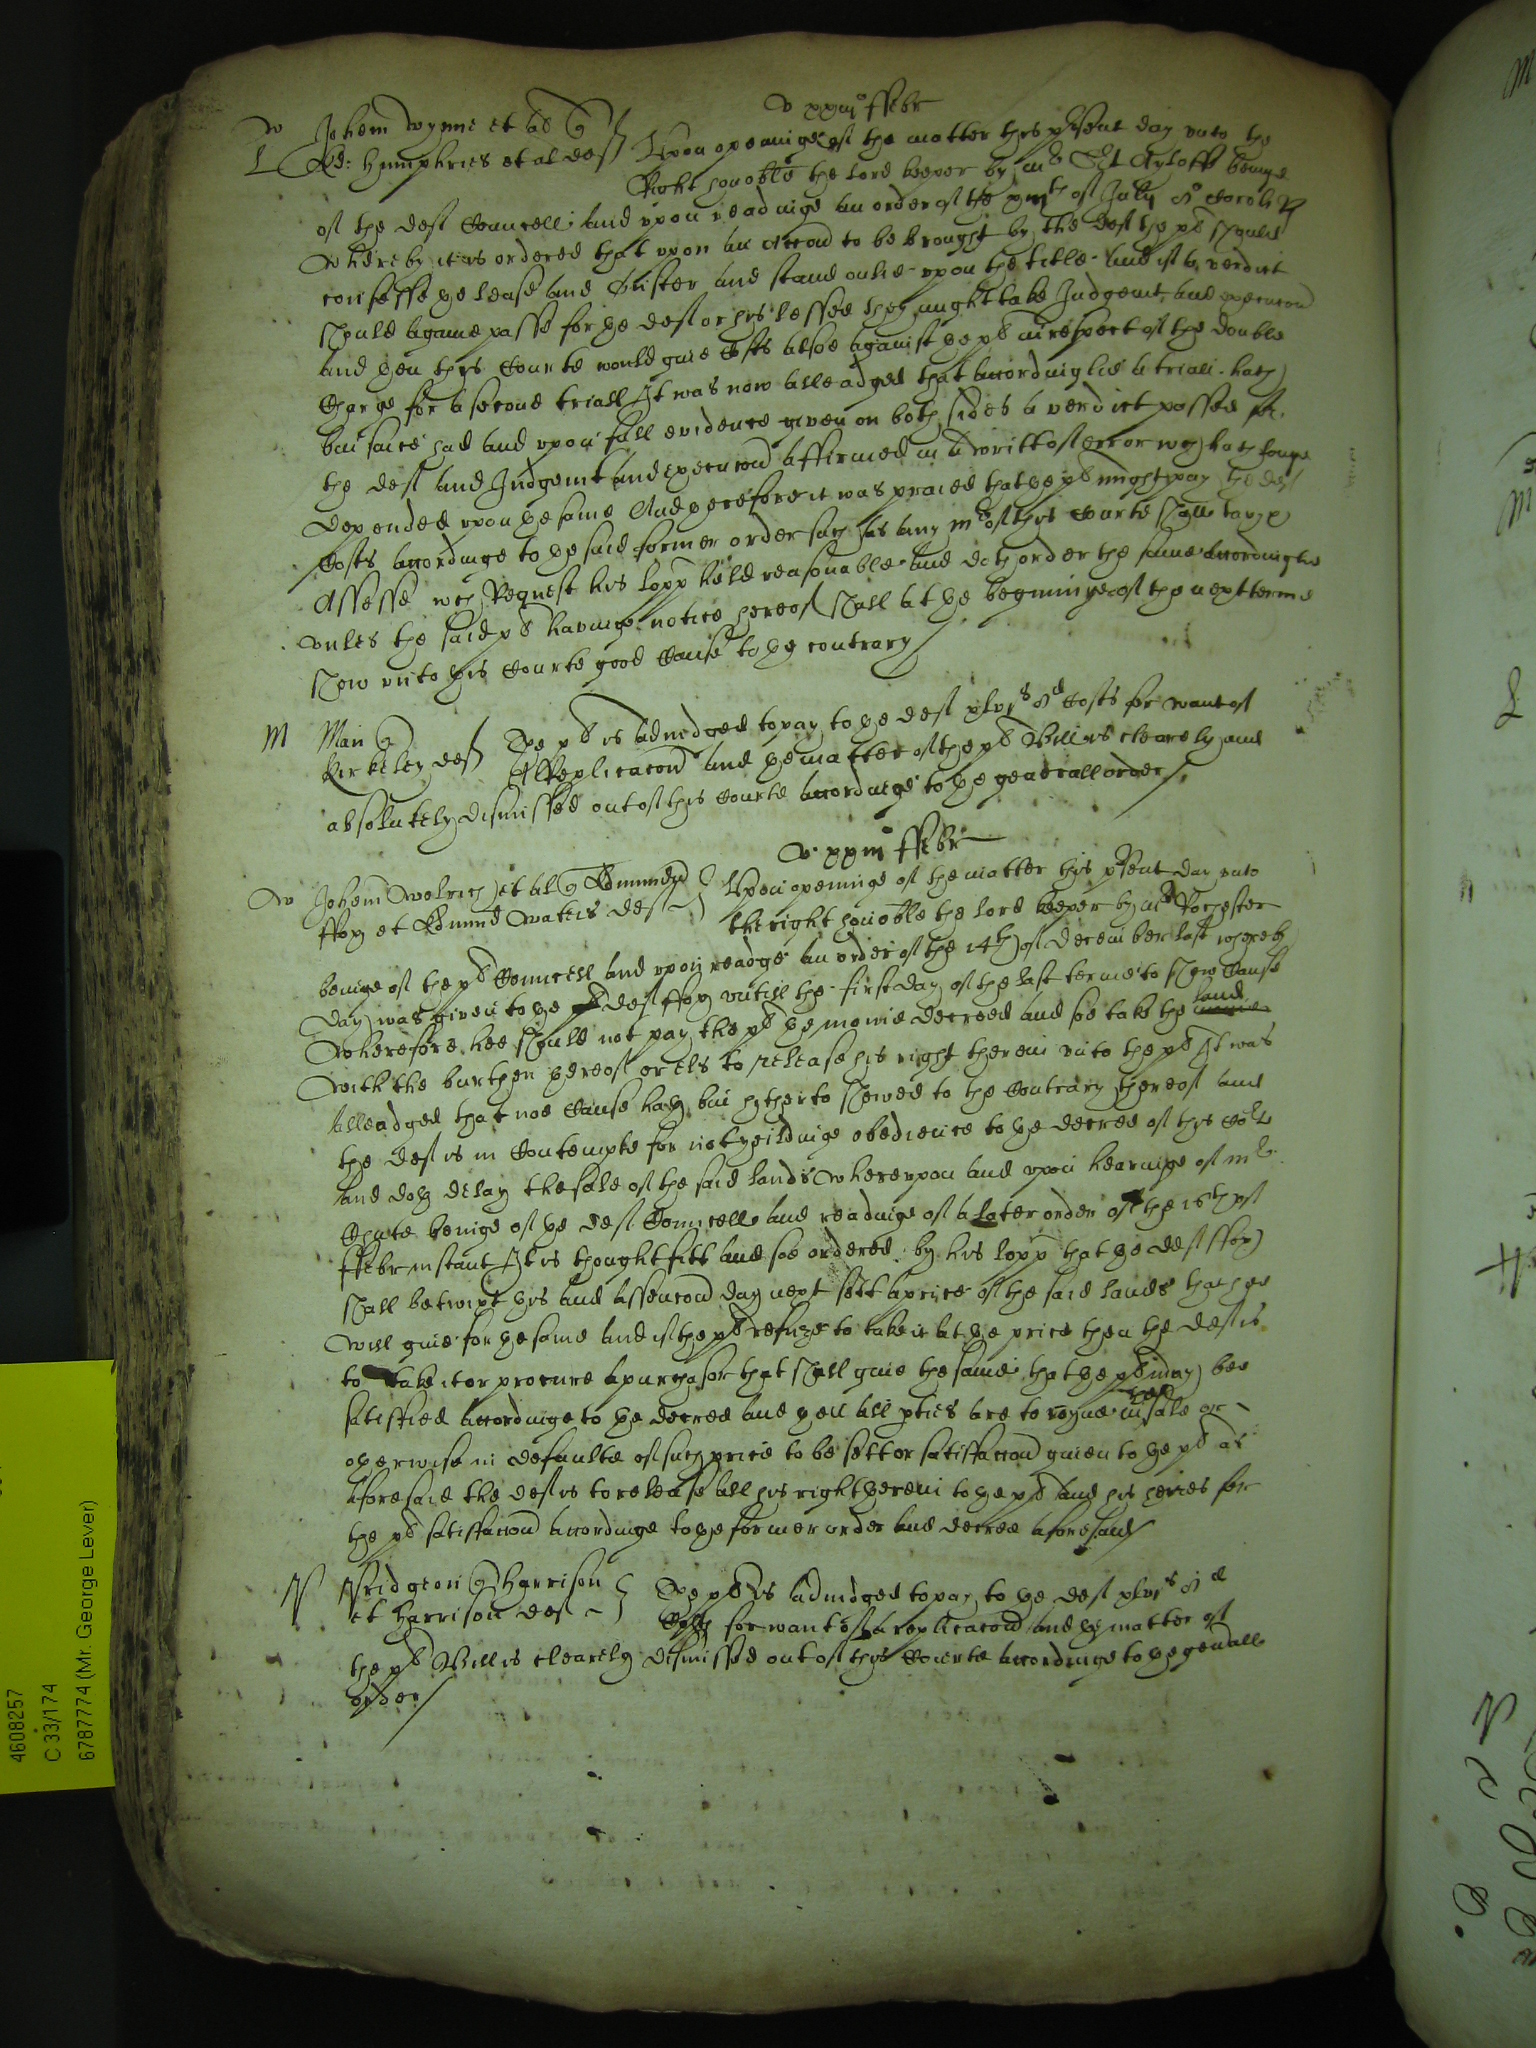 V xxiijo ffebr
W Johem Wynne et al q
L Ed: Humphries et al def Upon openinge of the matter this pñte day unto the
Right honoble the lord keeper by mr Ayloffe beinge
of the def Councell, And upon readinge an order of the of July Caroli R
Whereby it was ordered that upon an Accon to be brought by the def the pl should
confesse the lease and Ouster and stand onlie upon the title And if a verdict
should againe passe for the def or his lessee they might take Judgemt and execucon
and then this Courte would give Costs alsoe against the pl in respect of the double
Charge for a second triall It was now alleadged that accordinglie a triall hath
bin since had and upon full evidence given on both sides a verdict passed for
the def and Judgemt and execucon affirmed in a writt of error wch hath longe
depended upon the same And therefore it was praied that the pl might pay the def
Costs accordinge to the said former order such as any mr of this Courte shall taxe
Assesse wch Request his lopp held reasonable and doth order the same accordinglie
unles the said pl havinge notice hereof shall at the beginninge of the next terme
shew unto this Courte good Cause to the contrary
M Man q
Kirkeley def The pl is adiudged to pay to the def Costs for want of
A Replicacon and the matter of the pl Bill is clearely and
absolutely dismissed out of this Courte accordinge to the generall order
V xxiijo ffebr
W Johem Wolrich et al q Edmund
ffox et Edmund Waters def Upon openinge of the matter this pñte day unto
the right honoble the lord keeper by mr Rochester
beinge of the pl Councell and upon readge an order of the 14th of December last whereby
day was given to the def ffox untill the first day of the last terme to shew Cause
Wherefore hee should not pay the pl the monie decreed and soe take the land
with the burthen thereof or els to release his right therein unto the pl It was
Alleadged that noe Cause hath bin hitherto shewed to the Contrary thereof and
the def is in Contempte for not yeildinge obedience to the decree of this Cort
and doth delay the sale of the said lands Whereupon and upon hearinge of mr
Chute beinge of the def Councell and readinge of a later order of the 16th of
ffebr instant It is thought fitt and soe ordered by his lopp that the def ffox
shall betwixt this and Assencon day next sett a price of the said lands that hee
will give for the same and if the pl refuse to take it at the price then the def is
to take it or procure a purchasor that shall give the same that the pl may bee
satisfied accordinge to the decree and then all pties are to ioyne in sale or
otherwise in defaulte of such price to be sett or satisfaccon given to the pl as
aforesaid the def is to release all his right therein to the pl and his heires for
the pl satisfaccon accordinge to the former order and decree aforesaid
N Nridgeon q Harrison
et Harrison def The pl is adiudged to pay to the def
Costs for want of a replicacon and the matter of
the pl Bill is clearely dismissed out of this Courte accordinge to the genall
order
4608257
C 33/174
6787774 (Mr. George Lever)